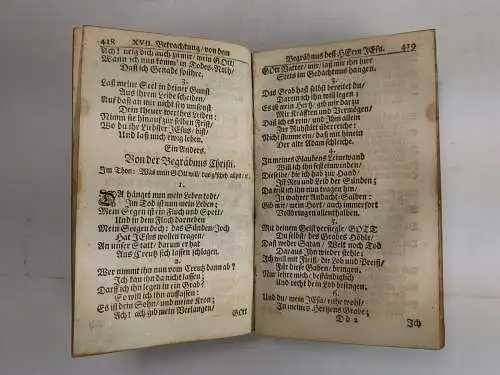 418 XVII. Betrachtung/ von dem
Ach! neig dich auch zu mir/ mein GOtt/
Wann ich nun komm' in Todes-Noth/
Daß ich Genade spühre.
3.
Laß meine Seel in deiner Gunst
Aus ihrem Leibe scheiden/
Auf daß an mir nicht sey umsonst
Dein theuer werthes Leiden:
Nimm sie hinauf zur selben Frist/
Wo du ihr Liebster JEsus/ bist/
Und laß mich ewig leben.
Ein Anders.
Von der Begräbnus Christi.
Im Thon: Was mein GOtt will/ das g'scheh
1.
DA hänget nun mein Leben todt/
Im Tod ist nun mein Leben;
Mein Segen ist ein Fluch und Spott/
Und in dem Fluch darneben
Mein Segen doch: das Sünden-Joch
Hat JEsus wollen tragen:
An unser Statt/ darum er hat
Ans Creutz sich lassen schlagen.
2.
Wer nimmt ihn nun vom Creutz dann ab?
Ich kan ihn da nicht lassen;
Darff ich ihn legen in ein Grab?
So will ich ihn auffassen:
Es ist dein Sohn/ und meine Kron;
Ach! ach gib mein Verlangen/
GOtt
Begräbnus deß HErrn JEsu. 419
GOtt Vatter/ mir/ laß mir ihn hier
Stets im Gedächtnus hangen.
3.
Das Grab daß selbst bereitet du/
Darein ich ihn will legen:
Es ist mein Hertz/ gib mir darzu
Mit Kräfften und Vermögen/
Daß ich es rein/ und ihn allein
Zur Ruhstätt überreiche:
Nicht stimm ein/ daß mit hinein
Der alte Adam schleiche.
4.
In meines Glaubens Leinewand
Will ich ihn fest einwinden/
Dieselbe/ die ich had zur Hand/
Ist Reu und Leid der Sünden;
Da will ich ihn nun tragen hin/
In wahrer Andacht-Salben:
Gib mir/ mein Hort/ auch immerfort
Vollbringen allenthalben.
5.
Mit deinem Geist versiegle/ GOTT
Du selbst/ des Grabes Höhle/
Daß weder Satan/ Welt noch Tod
Daraus Ihn wieder stehle:
Ich will mit Fleiß/ dir Lob und Preiß/
Für diese Gaben/ bringen.
Nur lehre mich/ beständiglich
Und recht dein Lob besingen.
6.
Und du/ mein JEsu/ ruhe wohl/
In meines Hertzens Grabe;
Dd 2 Ich